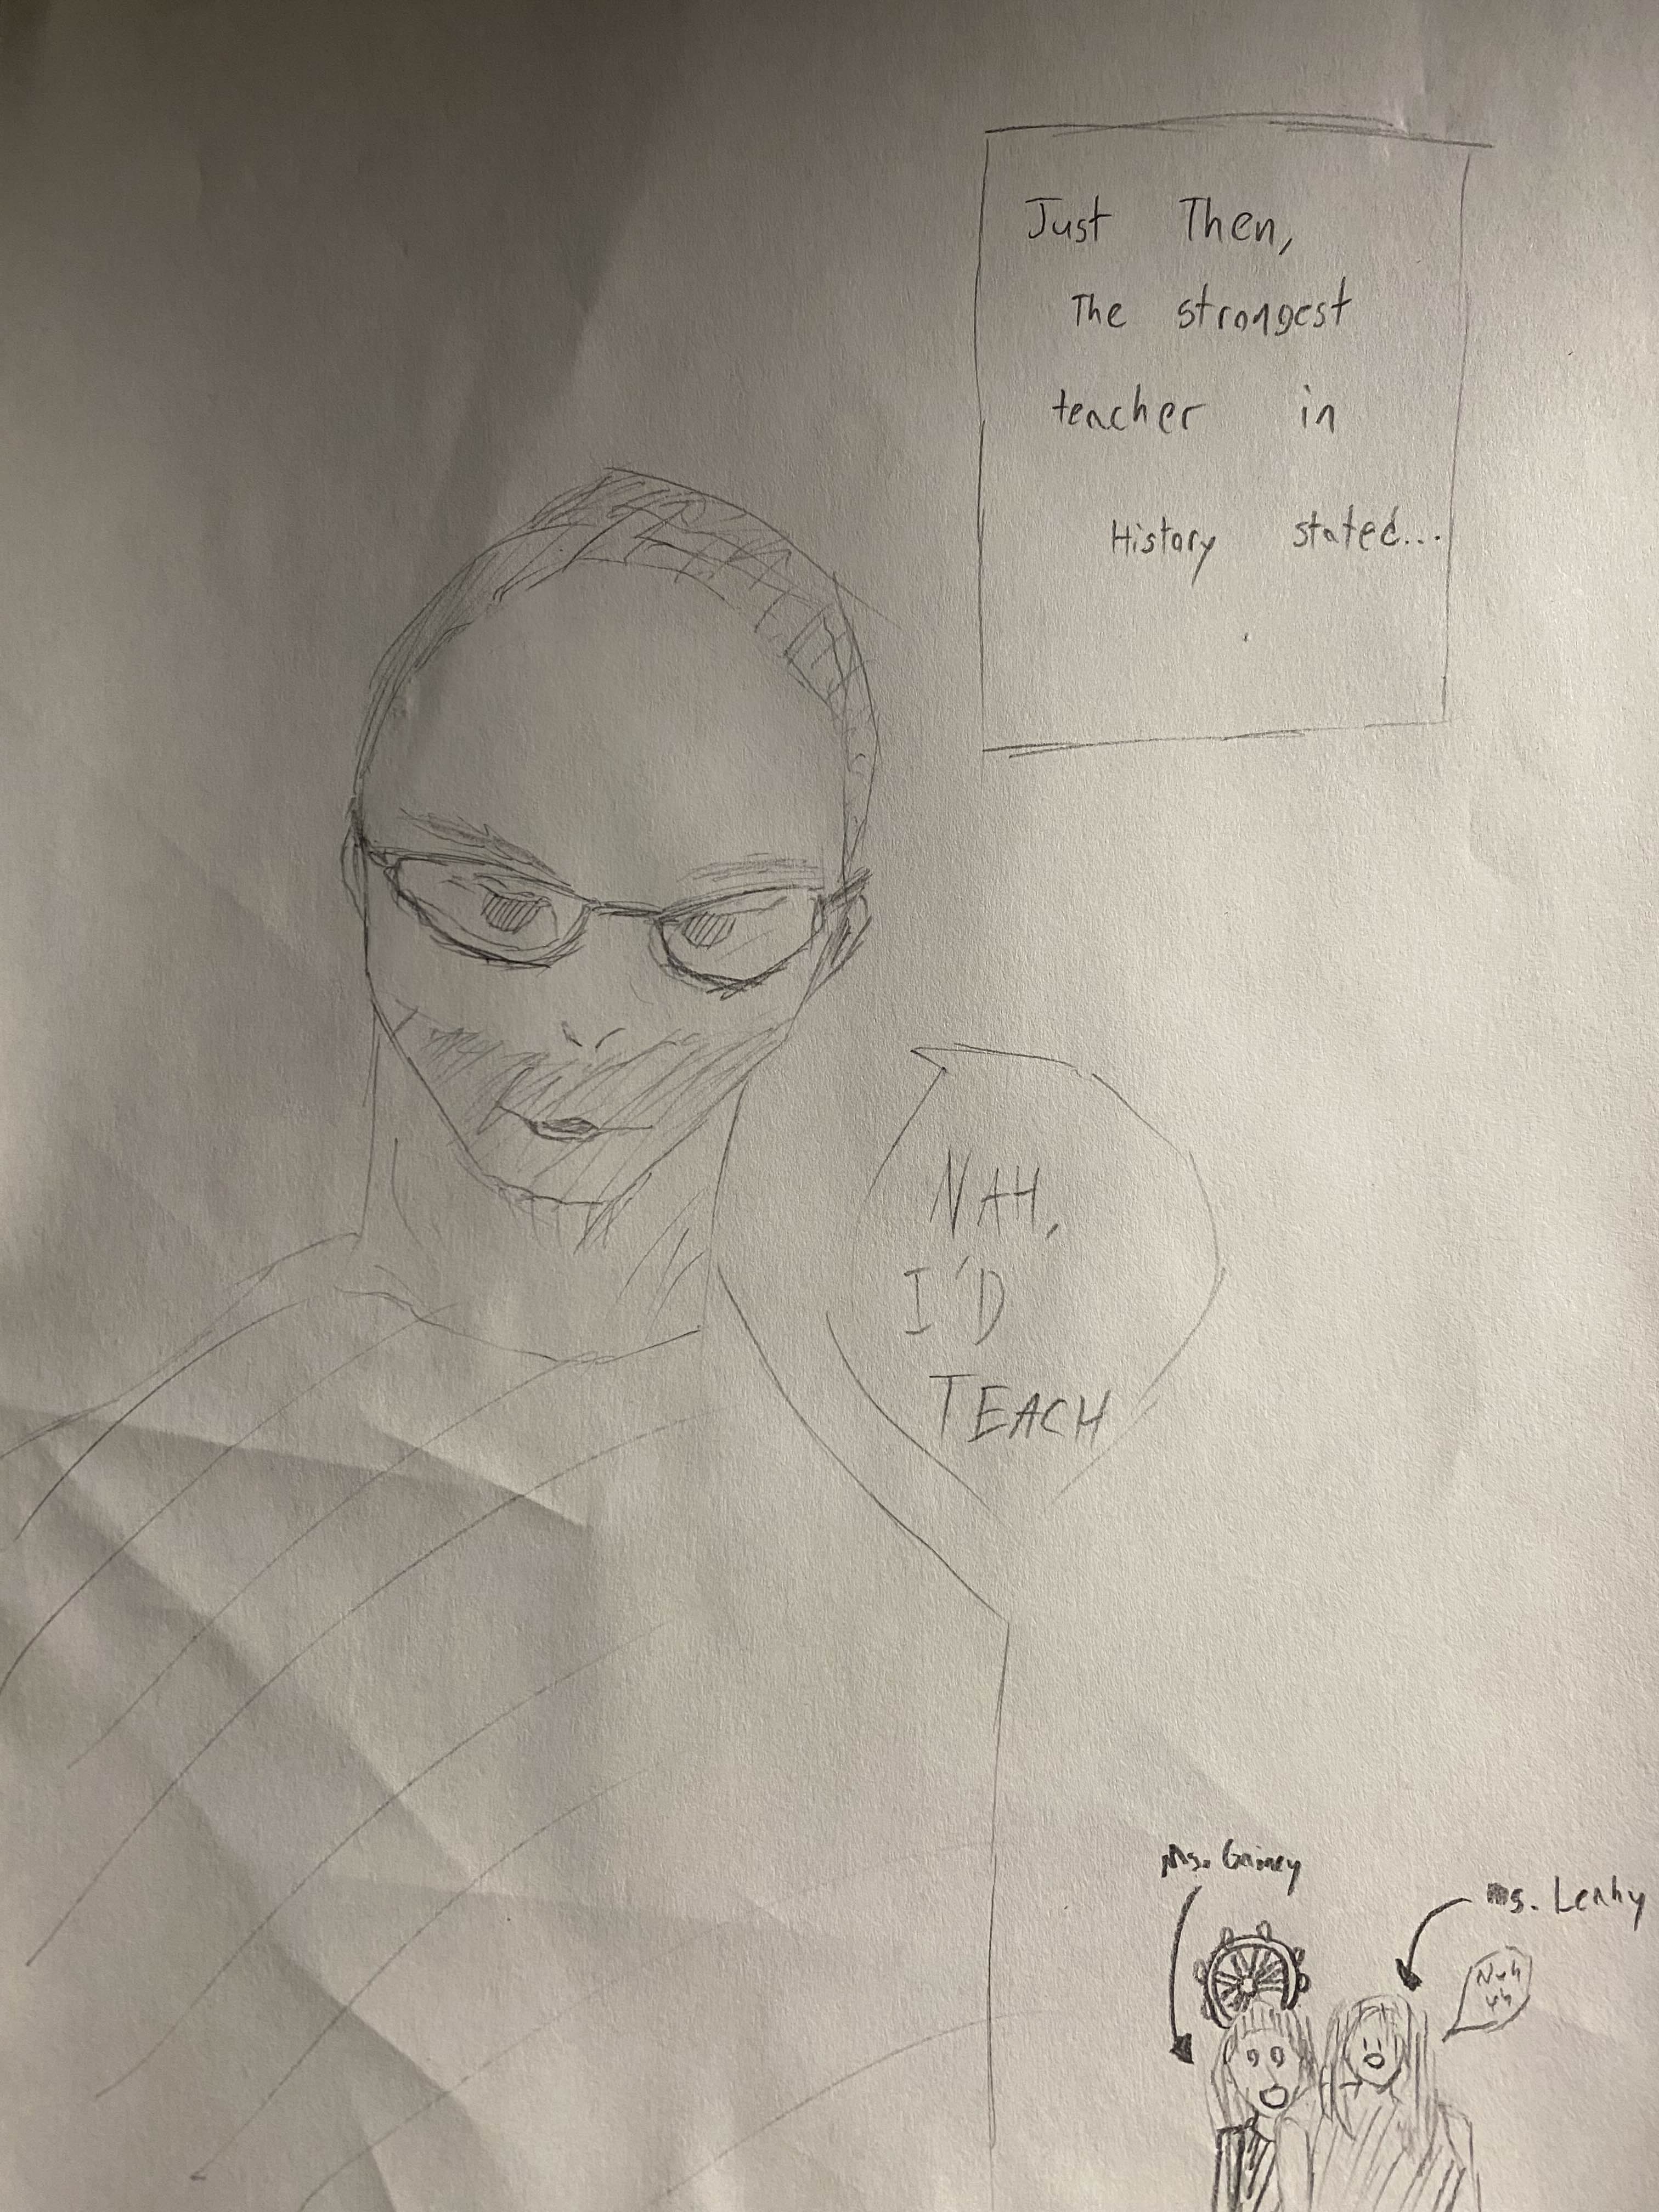 Just Then,
The strongest
teacher in
History stated...
NAH,
I'D
TEACH
Ms.
ms. Leahy
Nuh
uh